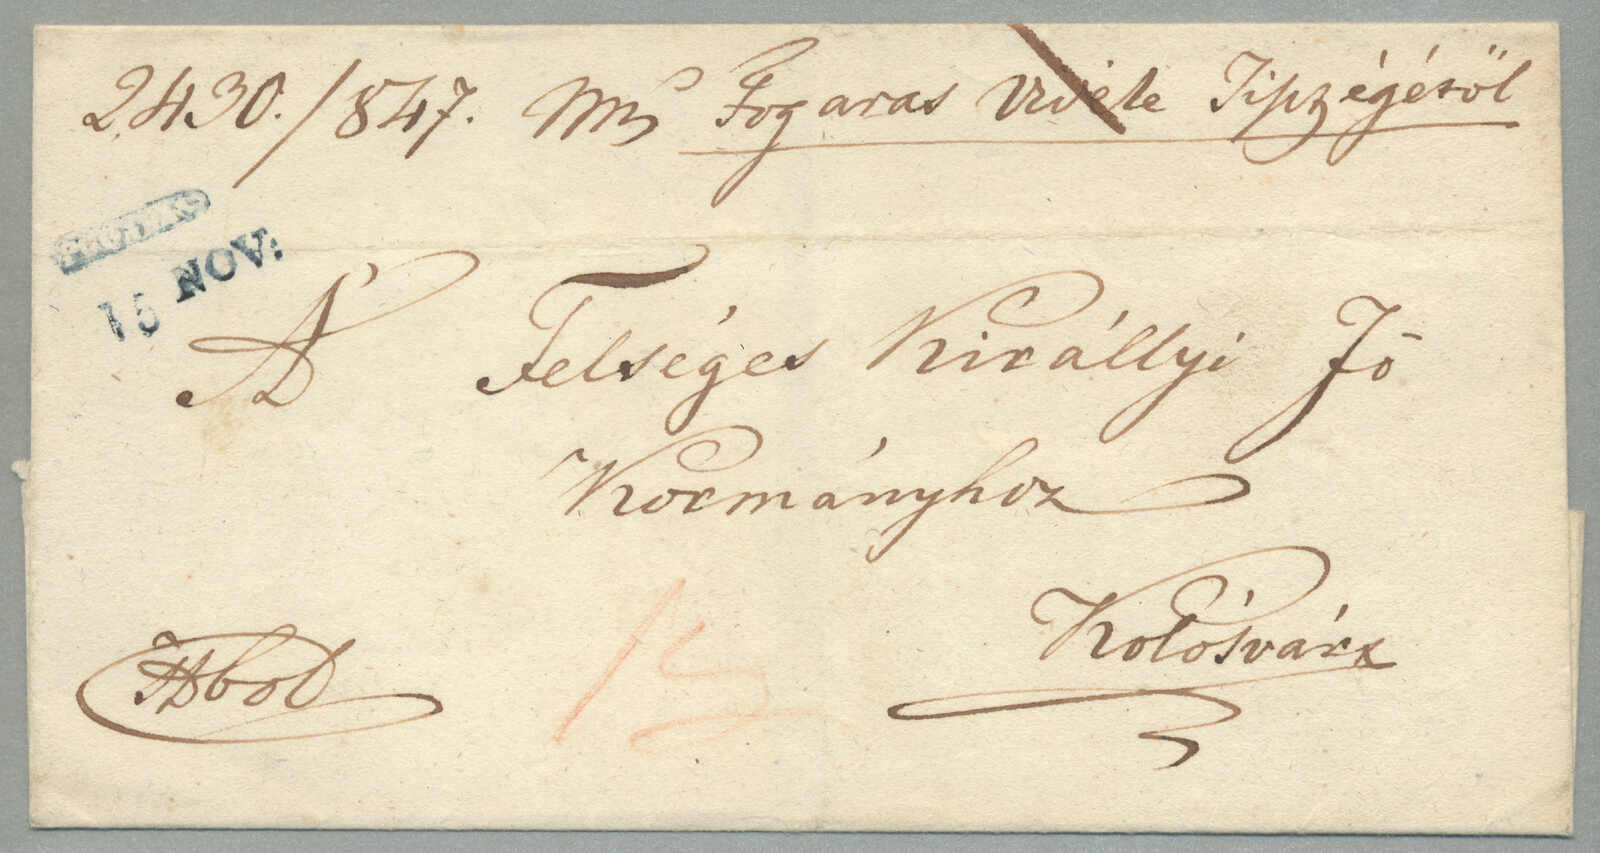 2430./847. Fogaras Vidéke Tisztségétől
15 NOV:
A Felséges Királlyi Fő
Kormányhoz
Kolosvárt